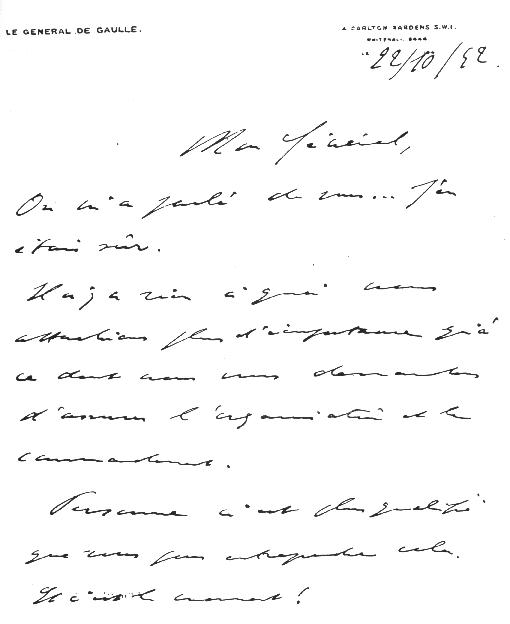 LE GENERAL DE GAULLE.
4 CARLTON GARDENS S.W.1.
WHITEHALL 5444
LE 22/10/42.
Mon Général,
On m'a parlé de vous... J'en
étais sûr.
Il n'y a rien à quoi nous
attachions plus d'importance qu'à
ce dont nous vous demandons
d'assurer l'organisation et le
commandement.
Personne n'est plus qualifié
que vous pour entreprendre cela.
Et c'est le moment !